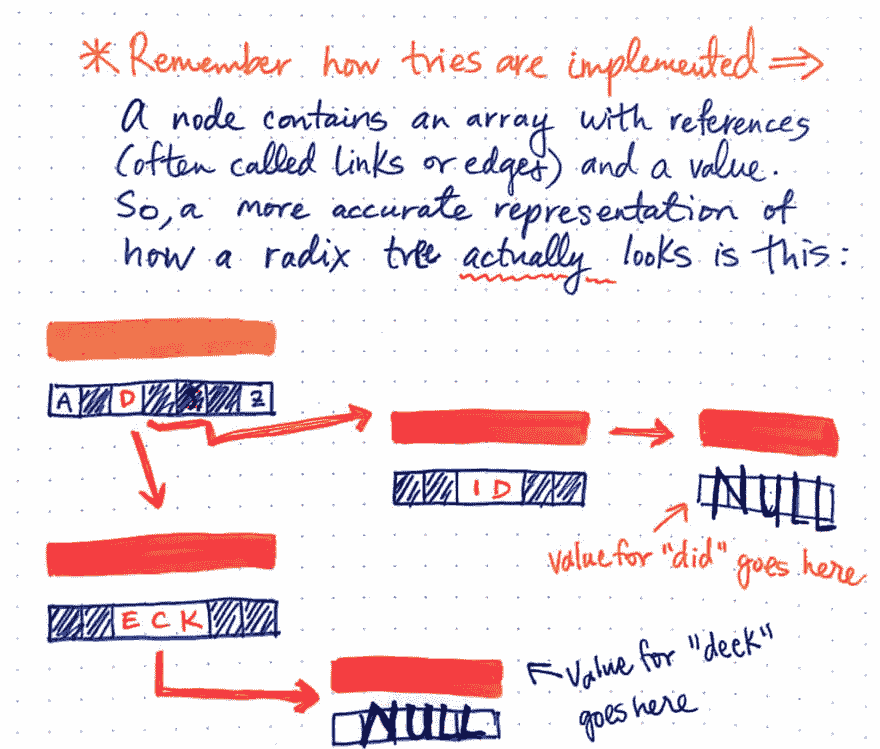 * Remember how tries are implemented ⇒
A node contains an array with references
(often called links or edges) and a value.
So, a more accurate representation of
how a radix tree actually looks is this:
A D Z
I D
NULL
value for "did" goes here
E C K
Value for "deck"
goes here
NULL